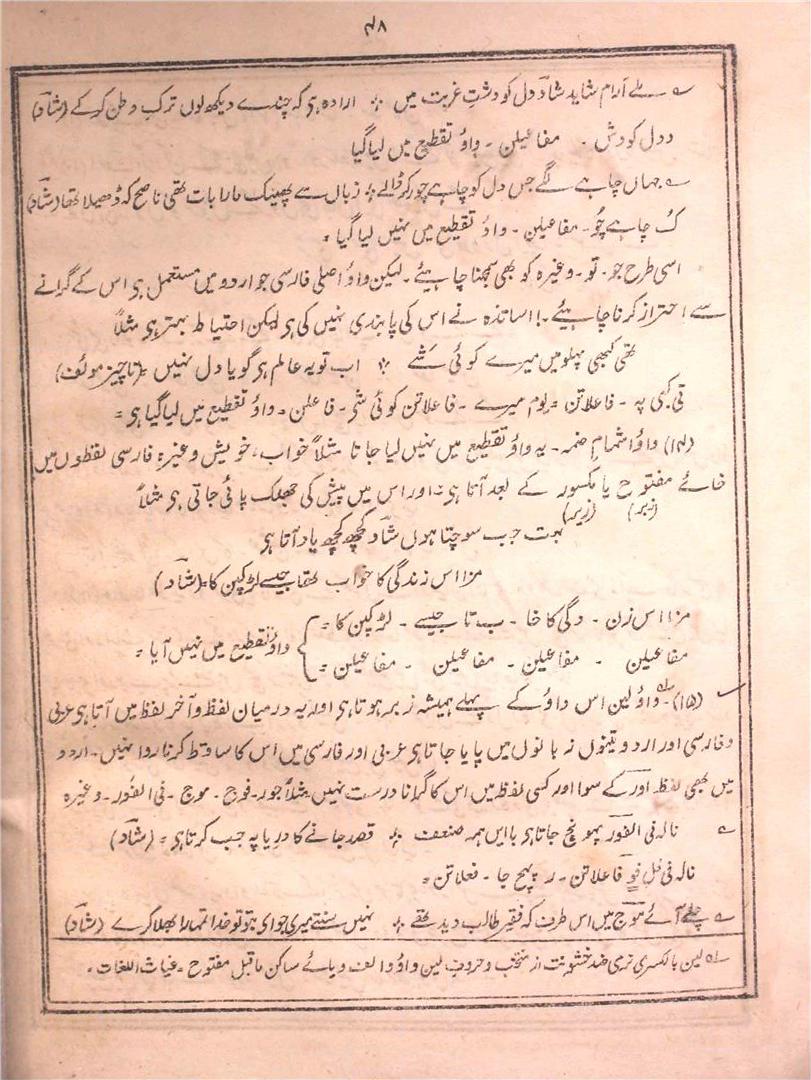 ۴۸
؎ ملے آرام شاید شادؔ دل کو دشتِ غربت میں ؞ ارادہ ہی کہ چندے دیکھ لوں ترکِ وطن کرکے (شادؔ)
ددل کو دش ۔ مفاعیلن ۔ واؤ تقطیع میں لیا گیا
؎ جہاں چاہے لگے جس دل کو چاہے چور کر ڈالے ؞ زباں سے پھینک مارا بات تھی ناصح کہ ڈھیلا تھا (شادؔ)
کُ چاہے چُو ۔ مفاعیلن ۔ واؤ تقطیع میں نہیں لیا گیا ۔
اسی طرح جو ۔ تو ۔ وغیرہ کو بھی سمجھنا چاہیئے ۔ لیکن واؤ اصلی فارسی جو اردو میں مستعمل ہی اس کے گرانے
سے احتراز کرنا چاہیئے ۔ اساتذہ نے اس کی پابندی نہیں کی ہی لیکن احتیاط بہتر ہی مثلاً
تھی کبھی پہلو میں میرے کوئی شے ؞ اب تو یہ عالم ہی گویا دل نہیں ۔ (ناچیز مولف)
تی کبی پہ ۔ فاعلاتن ۔ لوم میرے ۔ فاعلاتن کوئی شی ۔ فاعلن ۔ واؤ تقطیع میں لیا گیا ہی ۔
(۱۴) واؤ اشمامِ ضمہ ۔ یہ واؤ تقطیع میں نہیں لیا جاتا مثلاً خواب، خویش وغیرہ فارسی لفظوں میں
خائے مفتوح یا مکسور کے بعد آتا ہی ۔ اور اس میں پیش کی جھلک پائی جاتی ہی مثلاً
(زبر) (زیر)
بہت جب سوچتا ہوں شادؔ کچھ کچھ یاد آتا ہی
مزا اس زندگی کا خواب تھا جیسے لڑکپن کا ۔ (شادؔ)
مزا اس زن ۔ دگی کا خا ۔ ب تا جیسے ۔ لڑکپن کا ۔
مفاعیلن ۔ مفاعیلن ۔ مفاعیلن ۔ مفاعیلن ۔ } واؤ تقطیع میں نہیں آیا ۔
(۱۵) ۔ واؤ لین ؎۱ اس واؤ کے پہلے ہمیشہ زبر ہوتا ہی اور یہ درمیان لفظ و آخر لفظ میں آتا ہی عربی
و فارسی اور اردو تینوں زبانوں میں پایا جاتا ہی عربی اور فارسی میں اس کا ساقط کرنا روا نہیں ۔ اردو
میں بھی لفظ اَور کے سوا اور کسی لفظ میں اس کا گرانا درست نہیں مثلاً جور ۔ فوج ۔ موج ۔ فی الفور ۔ وغیرہ
؎ نالہ فی الفور پہونچ جاتا ہی با ایں ہمہ ضعف ؞ قصد جانے کا در یا پہ جب کرتا ہی ۔ (شادؔ)
نالہ فی فل فو فاعلاتن ۔ ر پہچ جا ۔ فعلاتن ۔
؎ چلے آئے موج میں اس طرف کہ فقیر طالبِ دید تھے ؞ نہیں سنتے میری جو ای بتو تو خدا تمہارا بھلا کرے (شادؔ)
؎۱ لین بالکسر نرمی ضد خشونت از منتخب و حروف لین واؤ و الف و یائے ساکن ماقبل مفتوح ۔ غیاث اللغات ۔